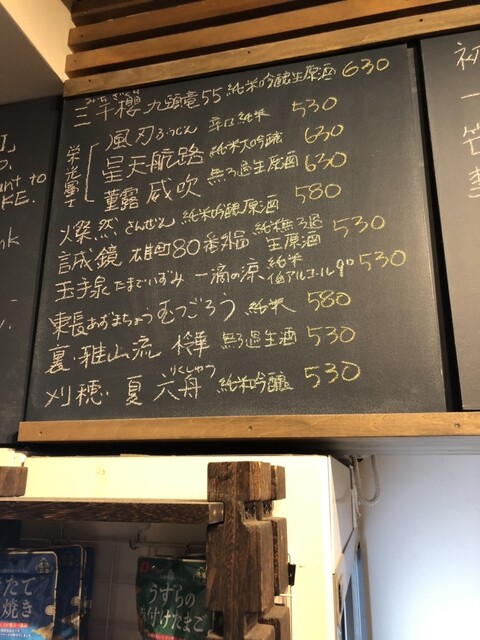 みちざくら
三千櫻 九頭竜55 純米吟醸生原酒 630
栄光冨士
風刃 ふうじん 辛口純米 530
星天航路 純米大吟醸 630
菫露 威吹 無ろ過生原酒 630
燦然 さんぜん 純米吟醸原酒 580
誠鏡 雄町80 番外編 純米無ろ過生原酒 530
玉手泉 たまでいずみ 一滴の涼 純米 低アルコール9° 530
東長 あずまちょう むつごろう 純米 580
裏・雅山流 楼華 無ろ過生酒 530
りくしゅう
刈穂・夏 六舟 純米吟醸 530
ant to
KE.
初
一
たて
焼き
うずらの
味付けたまご